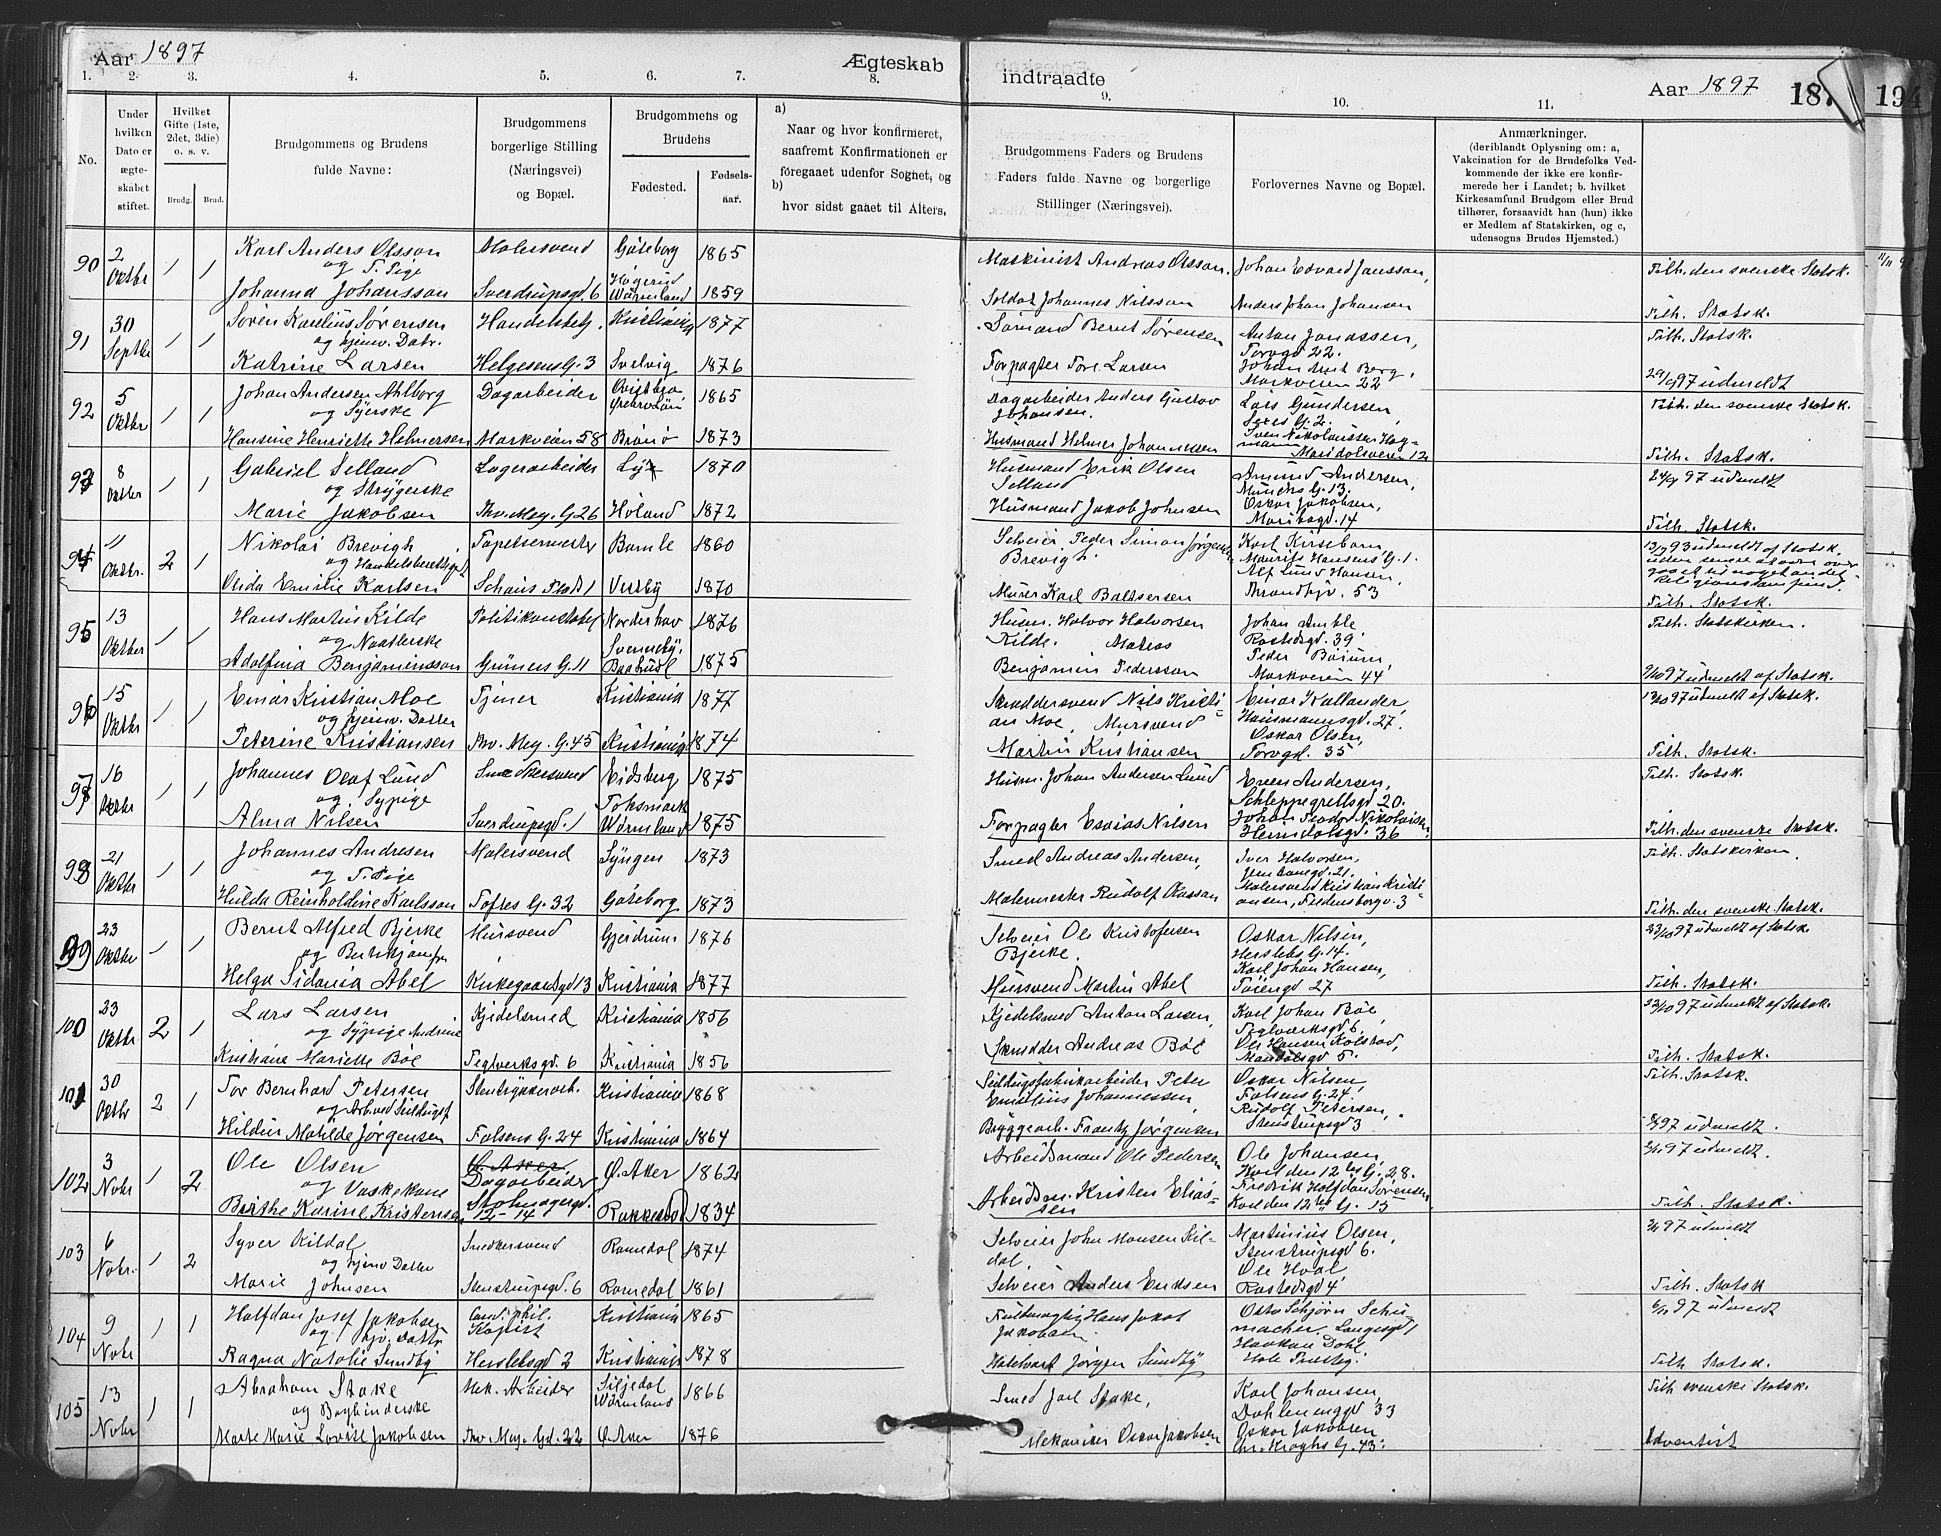 Aar 1897 Ægteskab indtraadte Aar 1897 187 194
1. 2. 3. 4. 5. 6. 7. 8. 9. 10. 11.
No.
Under hvilken Dato er ægteskabet stiftet.
Hvilket Gifte (1ste, 2det, 3die) o. s. v.
Brudg. Brud.
Brudgommens og Brudens fulde Navne:
Brudgommens borgerlige Stilling (Næringsvei) og Bopæl.
Brudgommens og Brudens
Fødested. Fødselsaar.
a) Naar og hvor konfirmeret, saafremt Konfirmationen er foregaaet udenfor Sognet, og
b) hvor sidst gaaet til Alters.
Brudgommens Faders og Brudens Faders fulde Navne og borgerlige Stillinger (Næringsvei).
Forlovernes Navne og Bopæl.
Anmærkninger.
(deriblandt Oplysning om: a, Vakcination for de Brudefolks Vedkommende der ikke ere konfirmerede her i Landet; b. hvilket Kirkesamfund Brudgom eller Brud tilhører, forsaavidt han (hun) ikke er Medlem af Statskirken, og c, udensogns Brudes Hjemsted.)
90 2 Oktbr 1 1 Karl Anders Olsson Malersvend Göteborg 1865 Maskinist Andreas Olsson, Johan Edvard Jansson, Tilh. den svenske Statsk.
og T. Pige
Johanna Johansson Sverdrupsgd. 6 Wärmland 1859 Soldat Johannes Nilsson Anders Johan Johansen Tilh. Statsk.
91 30 Septbr 1 1 Søren Karelius Sørensen Kristiania 1877 Sømand Bernt Sørensen Anton Jonassen, Torvgd 22. Tilh. Statsk.
og hjemv. Datr.
Katrine Larsen Helgesens G. 3 Svelvig 1876 Forpagter Tore Larsen Johan Berg, Markveien 22 29/9 97 udmeldt
92 5 Oktbr 1 1 Johan Andersen Ahlborg Dagarbeider Örebro Län 1865 Dagarbeider Anders Gustav Johansen. Lars Gundersen Tilh. den svenske Statsk.
og Syerske
Hansine Henriette Helmersen Markveien 58 Brønø 1873 Husmand Helmer Johannesen Sven Nikolaussen Hagmann Maridalsveien 12 Tilh. Statsk.
93 8 Oktbr 1 1 Gabriel Selland Lagerarbeider 1870 Husmand Erik Olsen Selland Amund Andersen, Munchs G. 13. 24/9 97 udmeldt
og Strygerske
Marie Jakobsen Thv. Mey. G. 26 Høland 1872 Husmand Jakob Johnsen Oskar Jakobsen, Maribogd. 14 Tilh. Statsk.
94 11 Oktbr. 2 1 Nikolai Brevigh Tapetsermester Bamle 1860 Selveier Peder Simon Jørgensen Brevigh. Karl Kirsebom, Maurits Hansens G. 1. 93 udmeldt af Statsk. uden senere at være overgaaet til noget andet Religionssamfund.
og Handelsberettiget
Olida Emilie Karlsen Schous Plads 1 Vestby 1870 Murer Karl Baltsersen Alf Lund Hansen, Trondhjv. 53 Tilh. Statsk.
95 13 Oktbr 1 1 Hans Martin Kilde Politikonstabel Norderhov 1876 Husm. Halvor Halvorsen Kilde. Johan Amble Rostedsgd. 39 Tilh. Statskirken.
og Naatlerske
Adolfina Benjaminsson Grüners G. 11 Baahusl. 1875 Matias Benjamin Pedersson Peder Markveien 44 97 udmeldt af Statsk.
96 15 Oktbr 1 1 Einar Kristian Moe Tjener Kristiania 1877 Skræddersvend Nils Kristian Moe, Einar Wallander, Hausmannsgd. 27. 97 udmeldt af Statsk.
og hjemv. Datter
Peterine Kristiansen Thv. Mey. G. 45 Kristiania 1874 Mursvend Martin Kristiansen Oskar Olsen, Torvgd. 35 Tilh. Statsk.
97 16 Oktbr 1 1 Johannes Olaf Lund Snedkersvend Eidsberg 1875 Husm. Johan Andersen Lund Even Andersen, Schleppegrellsgd 20. Tilh. Statsk.
og Sypige
Alma Nilsen Sverdrupsgd. 1 Töksmark Wärmland 1875 Forpagter Esaias Nilsen Johan Teodor Nikolaisen Heimdalsgd. 36 Tilh. den svenske Statsk.
98 21 Oktbr 1 1 Johannes Andresen Malersvend Lyngen 1873 Smed Andreas Andersen, Iver Halvorsen, Tilh. Statskirken.
og T. Pige
Hulda Reinholdine Karlsson Toftes G. 32 Göteborg 1873 Malermester Rudolf Malersvend Kristian Kristiansen, Fredensborgv. 3 Tilh. den svenske Statsk.
99 23 Oktbr 1 1 Bernt Alfred Bjerke Mursvend Gjerdrum 1876 Selveier Ole Kristofersen Bjerke. Oskar Nilsen, Herslebs G. 14. 23/10 97 udmeldt af Statsk.
og Butikjomfru
Helga Sidania Abel Kirkegaardsgd 13 Kristiania 1877 Mursvend Martin Abel Karl Johan Hansen, Tøiengd 27 Tilh. Statsk.
100 23 Oktbr 2 1 Lars Larsen Kjedelsmed Kristiania 1856 Kjedelsmed Anton Larsen, Karl Johan Böe, Teglverksgd 6, 97 udmeldt af Statsk.
og Sypige Andrine
Kristiane Mariette Böe Teglverksgd. 6 Kristiania 1856 Skrædder Andreas Böe Ole Hansen Kolstad, Mandalsgd 5. Tilh. Statsk.
101 30 Oktbr 2 1 Tor Bernhard Petersen Stentrykkerarb. Kristiania 1868 Seildugsfabrikarbeider Peter Emelius Johannessen, Oskar Nilsen Falsens G. 24. Tilh. Statsk.
og Arb. ved Seildugsf.
Hildur Matilde Jørgensen Falsens G. 24 Kristiania 1864 Byggearb. Frantz Jørgensen Rudolf Petersen, Stenstrupsgd 3 97 udmeldt.
102 3 Nobr 1 2 Ole Olsen Dagarbeider Ø. Aker 1862 Arbeidsmand Ole Pedersen Ole Johansen, Karl den 12tes G. 28. 97 udmeldt.
og Vaskekone
Birthe Karine Kristensen 12-14 Rakkestad 1834 Arbeidsm. Kristen Eliassen Fredrik Halfdan Sørensen Karl den 12tes G. 15 Tilh. Statsk.
103 6 Nobr. 1 2 Syver Kildal Snedkersvend Romedal 1874 Selveier John Monsen Kildal, Martinius Olsen, Stenstrupsgd 6. 97 udmeldt
og hjemv Datter
Marie Johnsen Stenstrupsgd. 6 Romedal 1861 Selveier Anders Eriksen Ole Hval Rostedsgd 4 Tilh. Statsk
104 9 Nobr 1 1 Halfdan Josef Jakobsen Cand. phil. Kopist Kristiania 1865 Fuldmægtig Hans Jakob Jakobsen Otto Schjørn Schumacher, Langesgd 1 97 udmeldt
og hjv. Dattr
Ragna Natalie Sundby Herslebsgd 2 Kristiania 1878 Jørgen Sundby Haakon Dahl, Hole Presteg. Tilh Statsk.
105 13 Nobr 1 1 Abraham Stake Mek. Arbeider Wärmland 1866 Smed Joel Stake, Karl Johansen, Dahlenenggd 33 Tilh svenske Statsk.
og Bogbinderske
Marte Marie Lovise Jakobsen Thv. Mey. Gd. 22 Ø. Aker 1876 Mekaniker Oskar Jakobsen Oskar Jakobsen Chr. Kroghs G. 43. Adventist